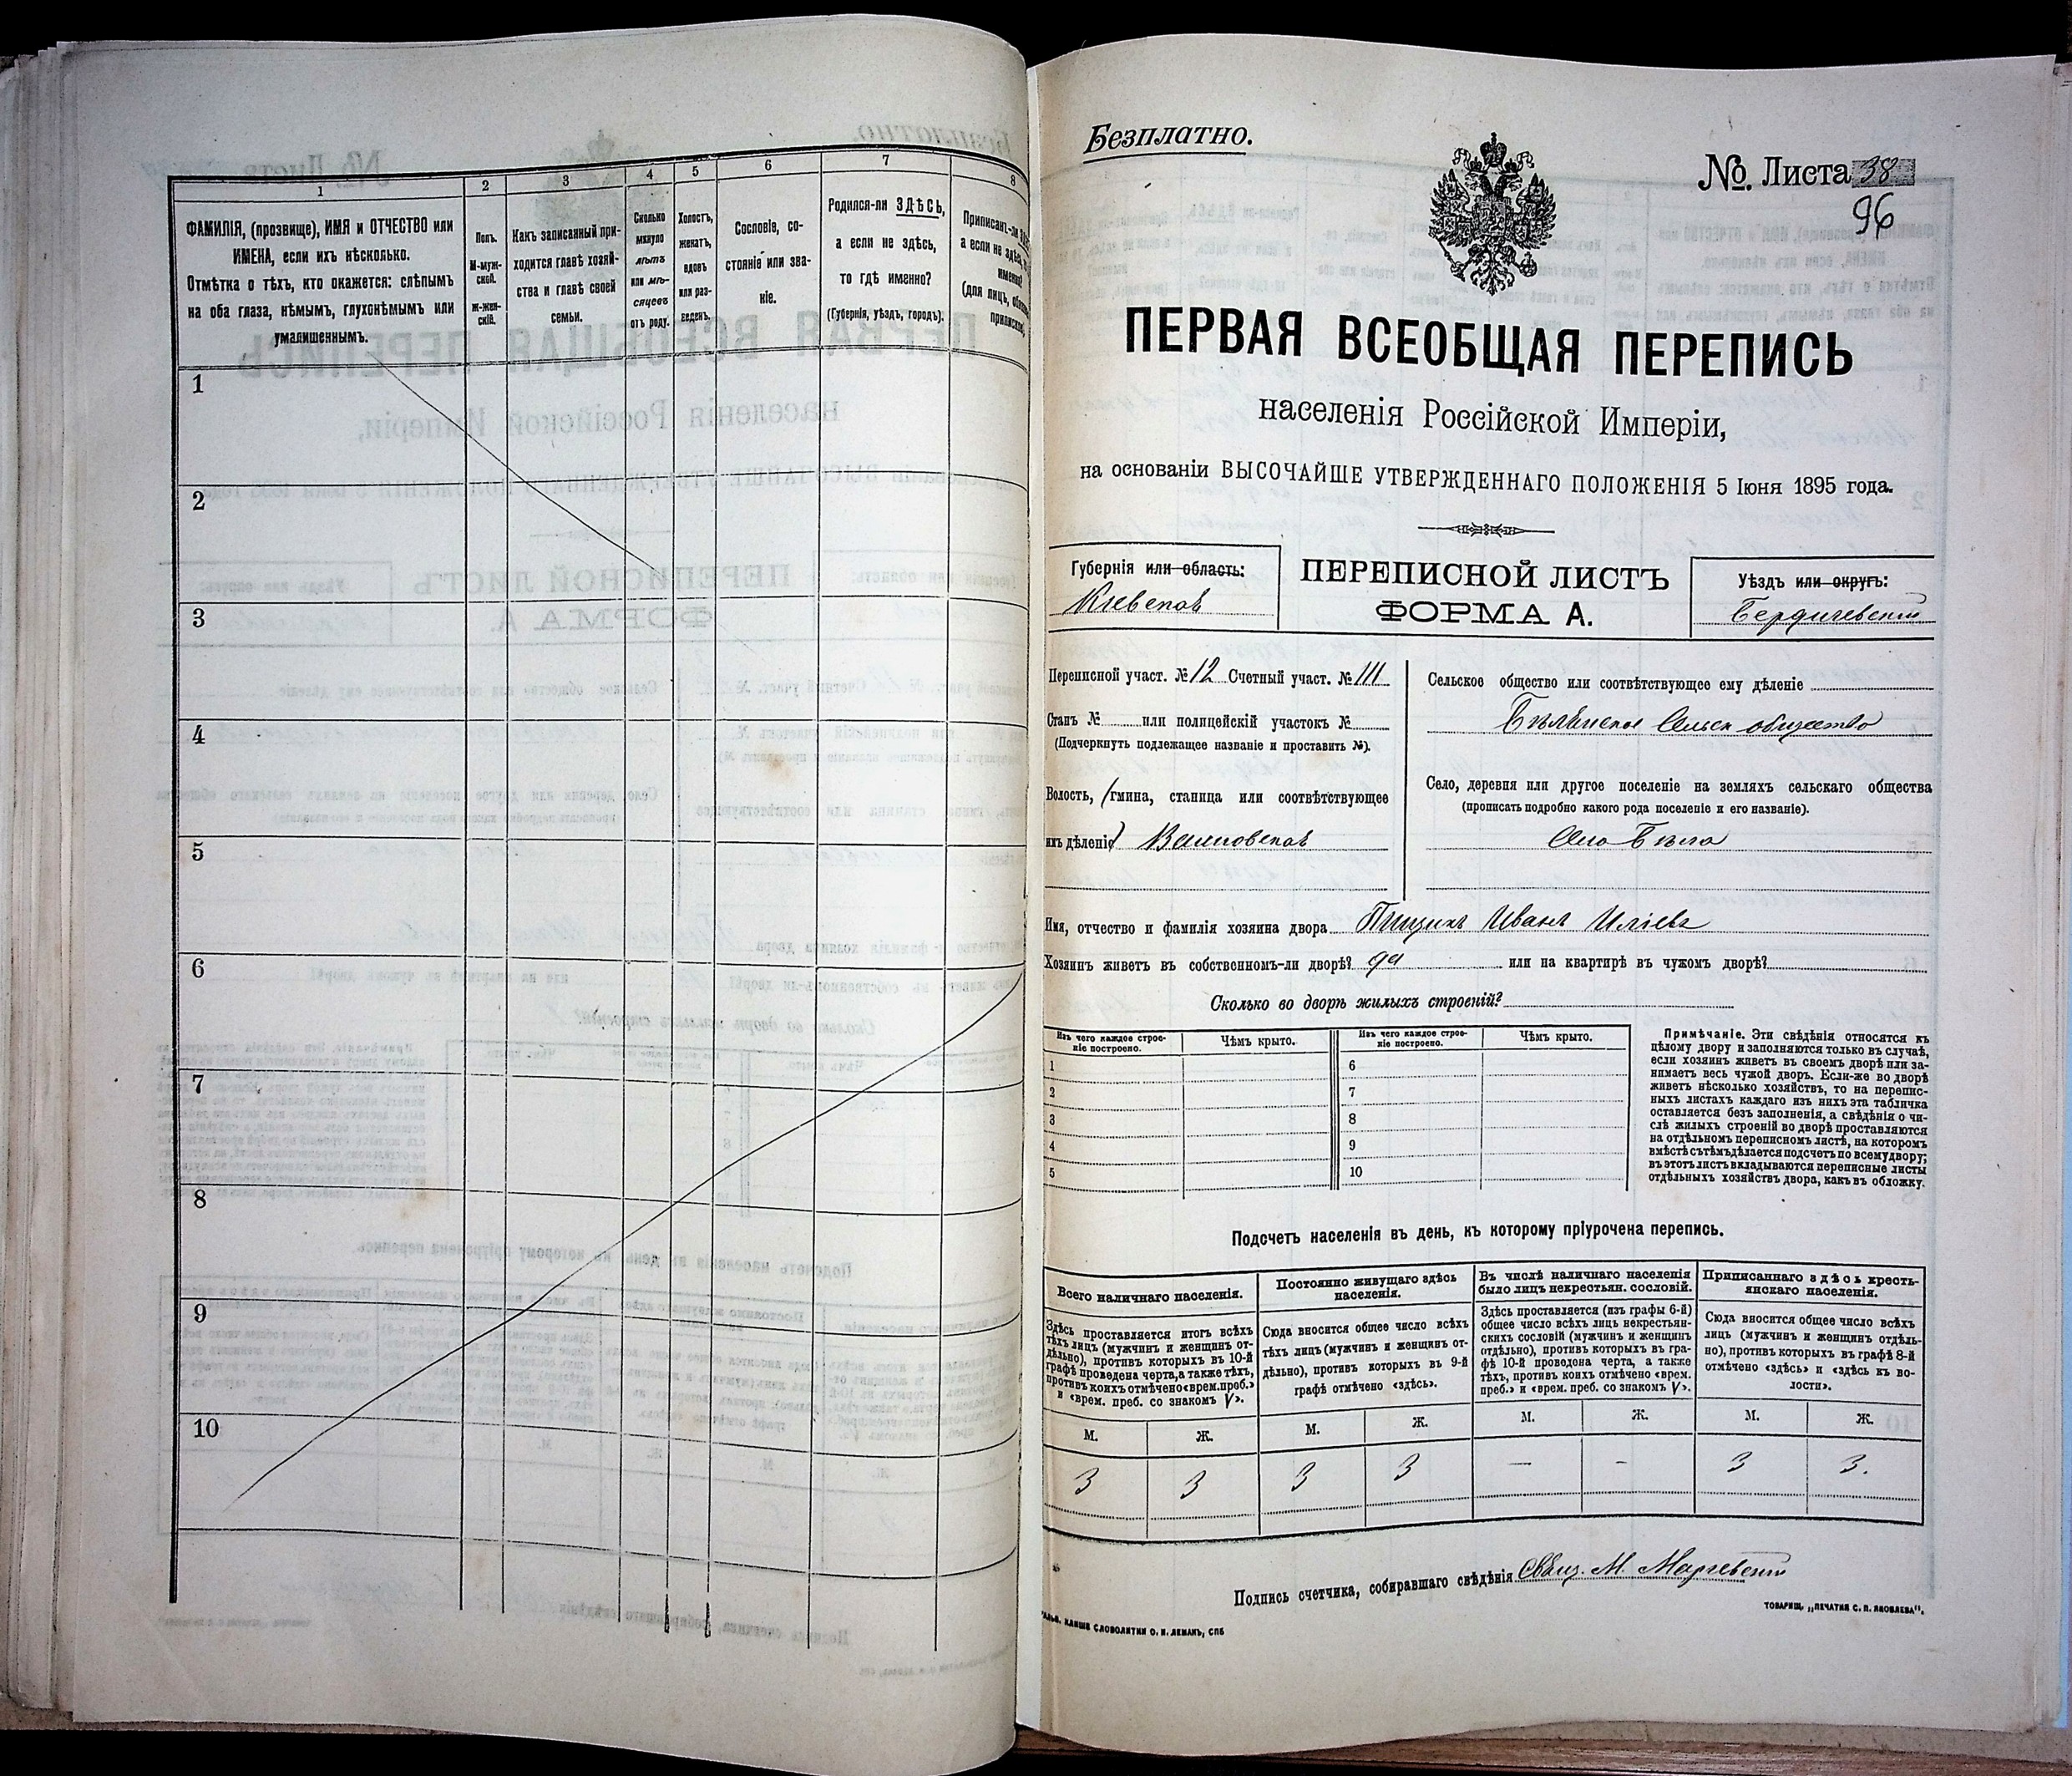 1 2 3 4 5 6 7 8
ФАМИЛІЯ, (прозвище), ИМЯ и ОТЧЕСТВО или
ИМЕНА, если ихъ нѣсколько.
Отмѣтка о тѣхъ, кто окажется: слѣпымъ
на оба глаза, нѣмымъ, глухонѣмымъ или
умалишеннымъ.
Полъ.
М-муж-
ской.
Ж-жен-
скій.
Какъ записанный при-
ходится главѣ хозяй-
ства и главѣ своей
семьи.
Сколько
минуло
лѣтъ
или мѣ-
сяцевъ
отъ роду.
Холостъ,
женатъ,
вдовъ
или раз-
веденъ.
Сословіе, со-
стояніе или зва-
ніе.
Родился-ли ЗДѢСЬ,
а если не здѣсь,
то гдѣ именно?
(Губернія, уѣздъ, городъ).
Приписанъ-ли
а если не здѣсь,
(для лицъ,
1
2
3
4
5
6
7
8
9
10
Безплатно.
№. Листа 38
96
ПЕРВАЯ ВСЕОБЩАЯ ПЕРЕПИСЬ
населенія Россійской Имперіи,
на основаніи ВЫСОЧАЙШЕ УТВЕРЖДЕННАГО ПОЛОЖЕНІЯ 5 Іюня 1895 года.
Губернія или область:
Кіевская
ПЕРЕПИСНОЙ ЛИСТЪ
ФОРМА А.
Уѣздъ или округъ:
Бердичевскій
Переписной участ. № 12 Счетный участ. № 111
Станъ № или полицейскій участокъ №
(Подчеркнуть подлежащее названіе и проставить №).
Волость, (гмина, станица или соотвѣтствующее
имъ дѣленіе)
Сельское общество или соотвѣтствующее ему дѣленіе
Бѣлянское Сельск общество
Село, деревня или другое поселеніе на земляхъ сельскаго общества
(прописать подробно какого рода поселеніе и его названіе).
Село Бѣла
Имя, отчество и фамилія хозяина двора Пищикъ Иванъ Иліевъ
Хозяинъ живетъ въ собственномъ-ли дворѣ? да или на квартирѣ въ чужомъ дворѣ?
Сколько во дворѣ жилыхъ строеній?
Изъ чего каждое строе-
ніе построено.
Чѣмъ крыто.
Изъ чего каждое строе-
ніе построено.
Чѣмъ крыто.
1 6
2 7
3 8
4 9
5 10
Примѣчаніе. Эти свѣдѣнія относятся къ
цѣлому двору и заполняются только въ случаѣ,
если хозяинъ живетъ въ своемъ дворѣ или за-
нимаетъ весь чужой дворъ. Если-же во дворѣ
живетъ нѣсколько хозяйствъ, то на перепис-
ныхъ листахъ каждаго изъ нихъ эта табличка
оставляется безъ заполненія, а свѣдѣнія о чи-
слѣ жилыхъ строеній во дворѣ проставляются
на отдѣльномъ переписномъ листѣ, на которомъ
вмѣстѣ съ тѣмъ дѣлается подсчетъ по всему двору;
въ этотъ листъ вкладываются переписные листы
отдѣльныхъ хозяйствъ двора, какъ въ обложку.
Подсчетъ населенія въ день, къ которому пріурочена перепись.
Всего наличнаго населенія.
Здѣсь проставляется итогъ всѣхъ
тѣхъ лицъ (мужчинъ и женщинъ от-
дѣльно), противъ которыхъ въ 10-й
графѣ проведена черта, а также тѣхъ,
противъ коихъ отмѣчено «врем. преб.»
и «врем. преб. со знакомъ V».
Постоянно живущаго здѣсь
населенія.
Сюда вносится общее число всѣхъ
тѣхъ лицъ (мужчинъ и женщинъ от-
дѣльно), противъ которыхъ въ 9-й
графѣ отмѣчено «здѣсь».
Въ числѣ наличнаго населенія
было лицъ некрестьян. сословій.
Здѣсь проставляется (изъ графы 6-й)
общее число всѣхъ лицъ некрестьян-
скихъ сословій (мужчинъ и женщинъ
отдѣльно), противъ которыхъ въ гра-
фѣ 10-й проведена черта, а также
тѣхъ, противъ коихъ отмѣчено «врем.
преб.» и «врем. преб. со знакомъ V».
Приписаннаго здѣсь кресть-
янскаго населенія.
Сюда вносится общее число всѣхъ
лицъ (мужчинъ и женщинъ отдѣль-
но), противъ которыхъ въ графѣ 8-й
отмѣчено «здѣсь» и «здѣсь къ во-
лости».
М. Ж. М. Ж. М. Ж. М. Ж.
3 3 3 3 — - 3 3.
Подпись счетчика, собиравшаго свѣдѣнія Свящ. М. Маргевскій
КЛИШЕ СЛОВОЛИТНИ О. И. ЛЕМАНЪ, СПБ
ТОВАРИЩ. „ПЕЧАТНЯ С. П. ЯКОВЛЕВА".